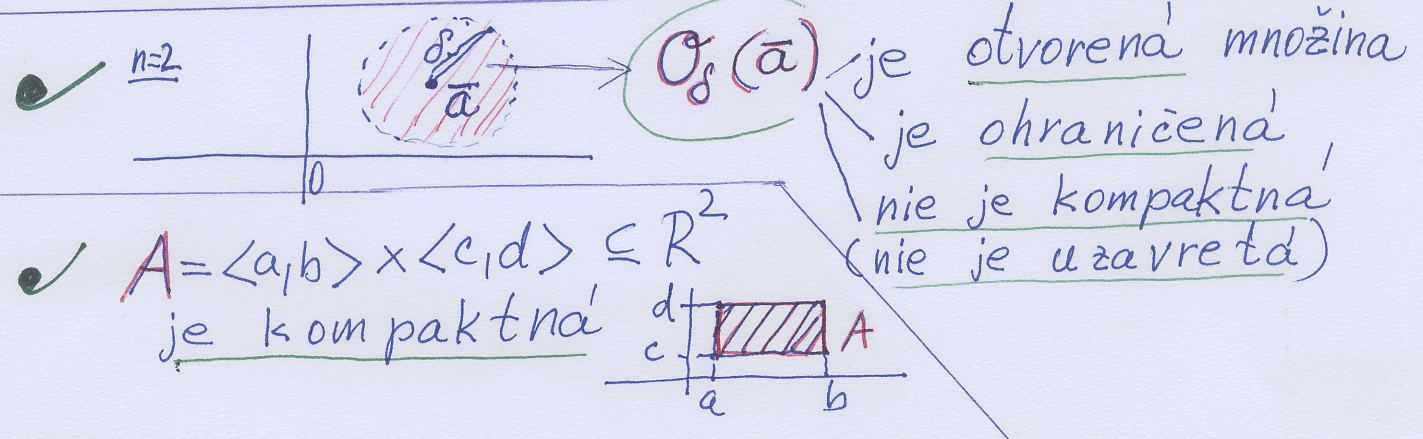 n=2
δ
ā
0
O_δ(ā)
je otvorená množina
je ohraničená
nie je kompaktná
(nie je uzavretá)
A = <a,b> × <c,d> ⊆ R²
je kompaktná
d
c
A
a b